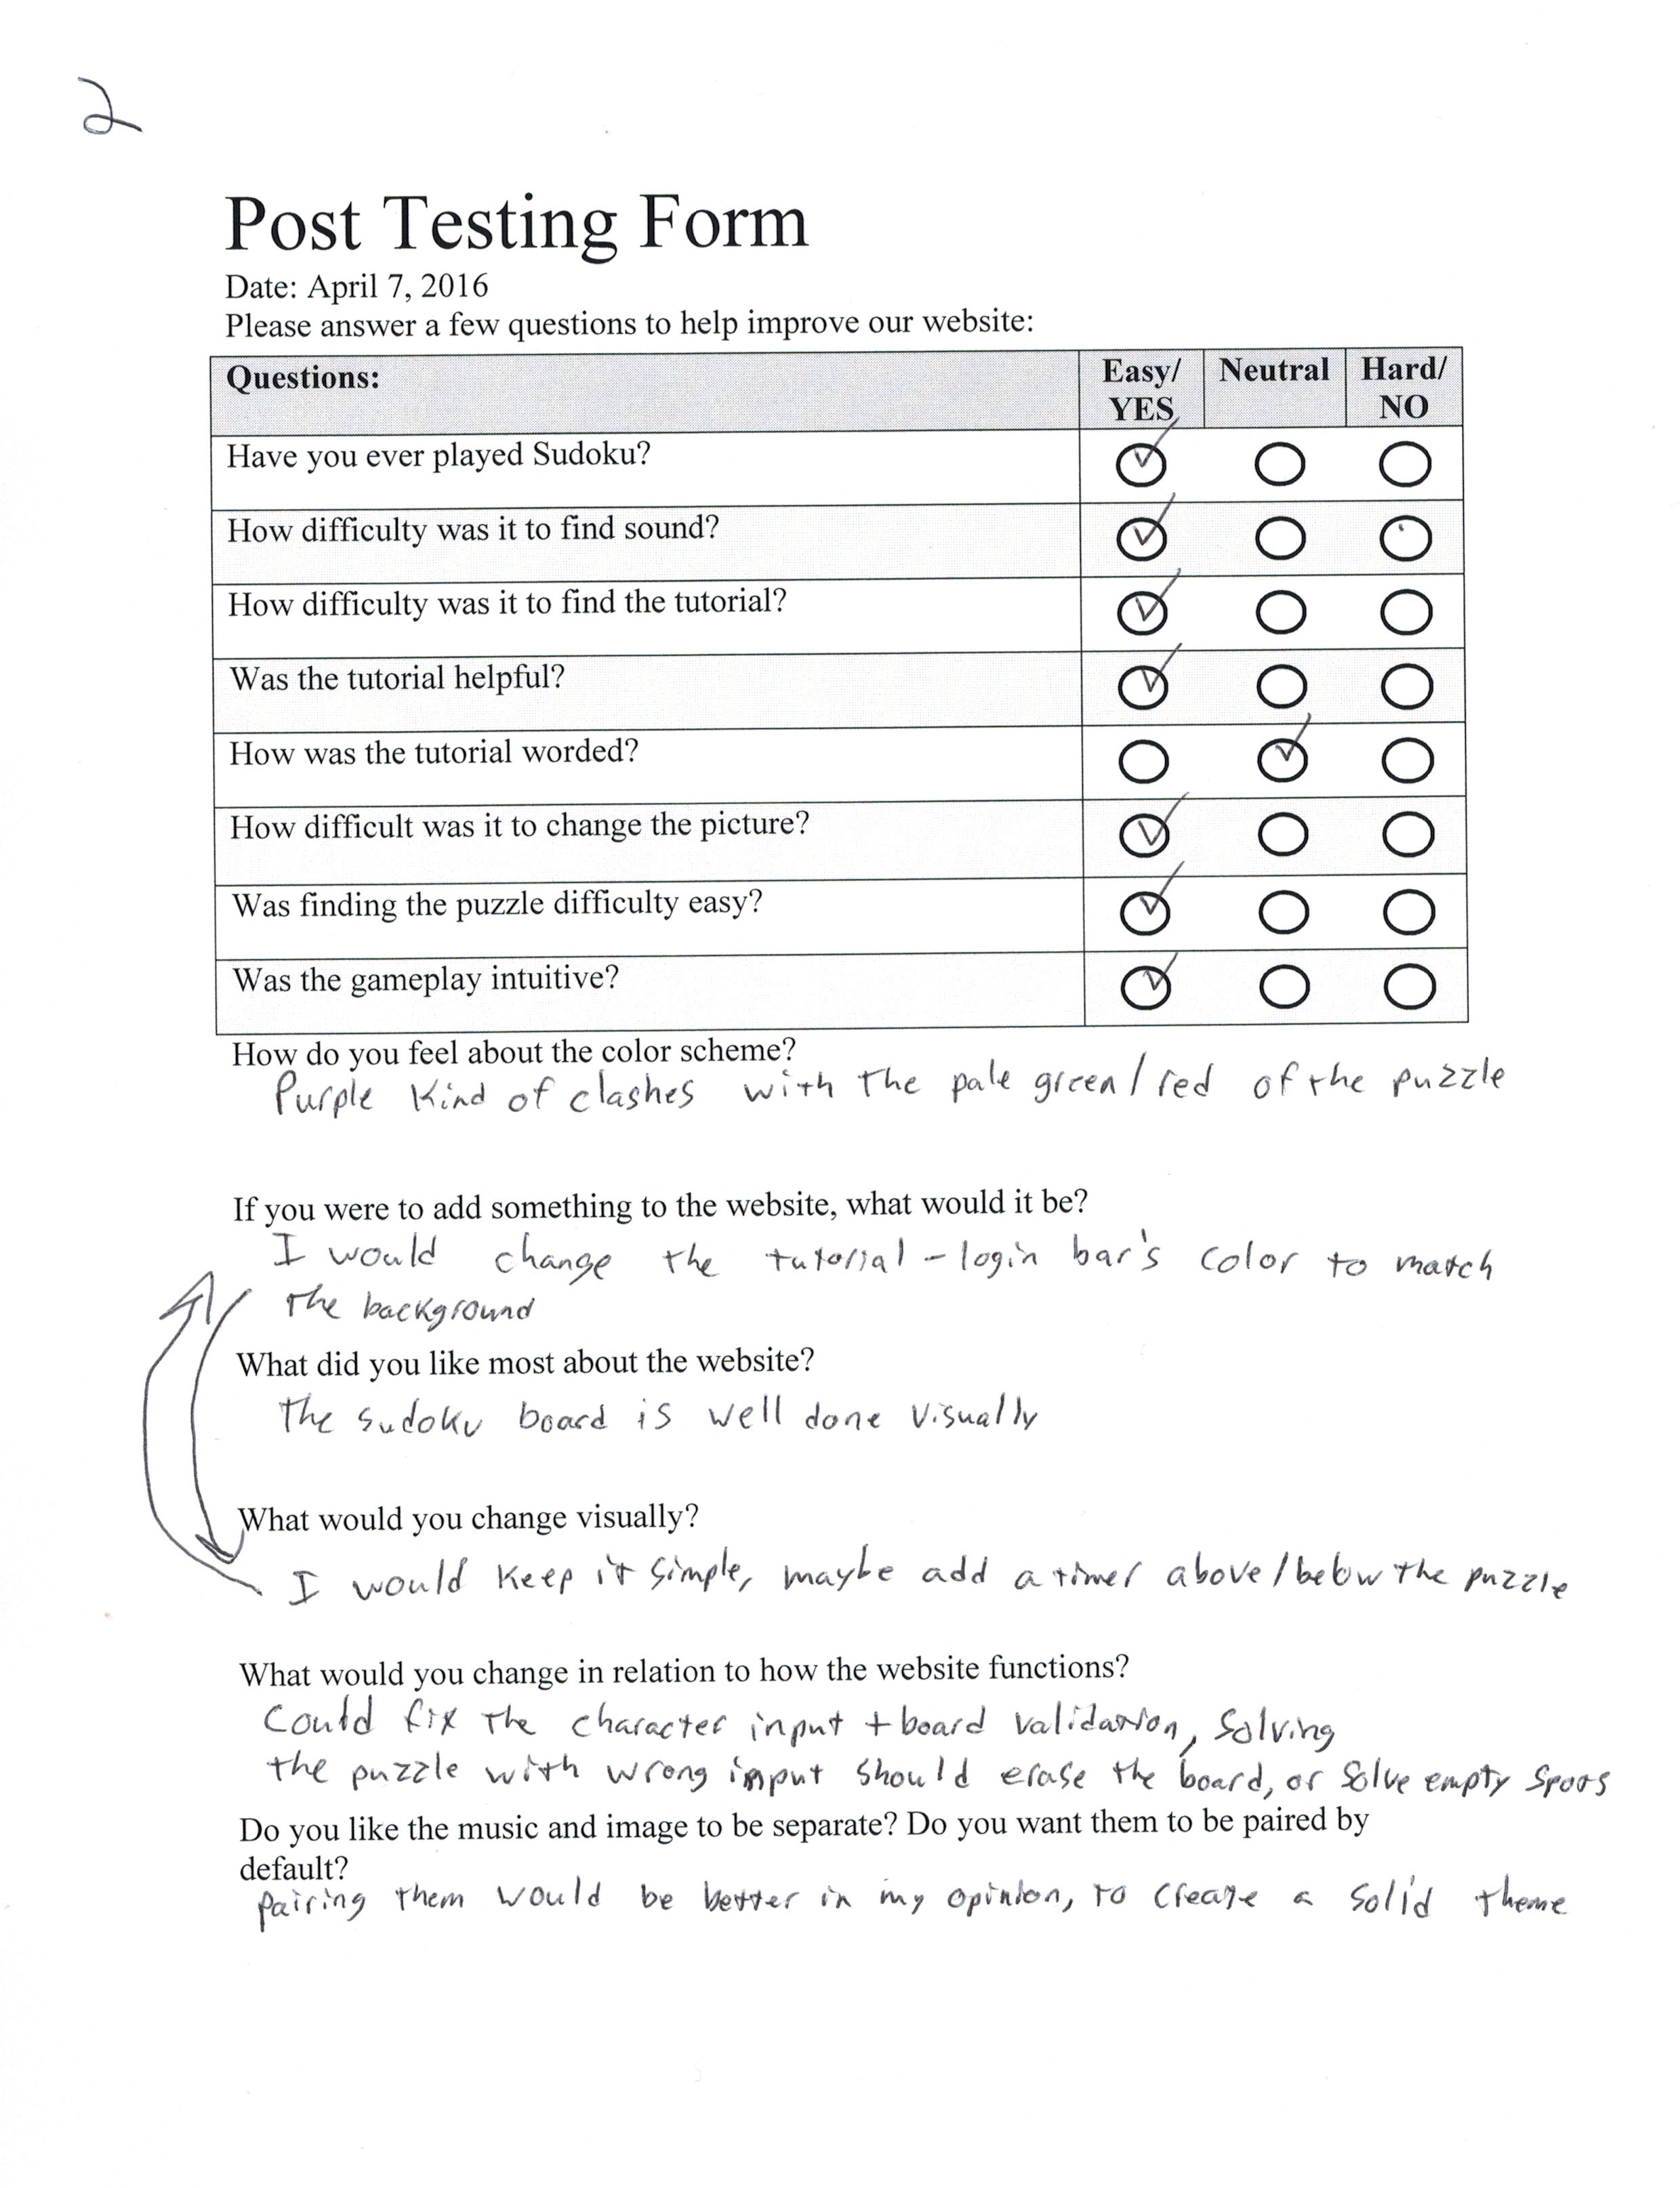 2
Post Testing Form
Date: April 7, 2016
Please answer a few questions to help improve our website:
Questions: Easy/ YES Neutral Hard/ NO
Have you ever played Sudoku?
How difficulty was it to find sound?
How difficulty was it to find the tutorial?
Was the tutorial helpful?
How was the tutorial worded?
How difficult was it to change the picture?
Was finding the puzzle difficulty easy?
Was the gameplay intuitive?
How do you feel about the color scheme?
Purple kind of clashes with the pale green/red of the puzzle
If you were to add something to the website, what would it be?
I would change the tutorial - login bar's color to match
the background
What did you like most about the website?
The sudoku board is well done visually
What would you change visually?
I would keep it simple, maybe add a timer above/below the puzzle
What would you change in relation to how the website functions?
Could fix the character input + board validation, solving
the puzzle with wrong input should erase the board, or solve empty spots
Do you like the music and image to be separate? Do you want them to be paired by
default?
pairing them would be better in my opinion, to create a solid theme